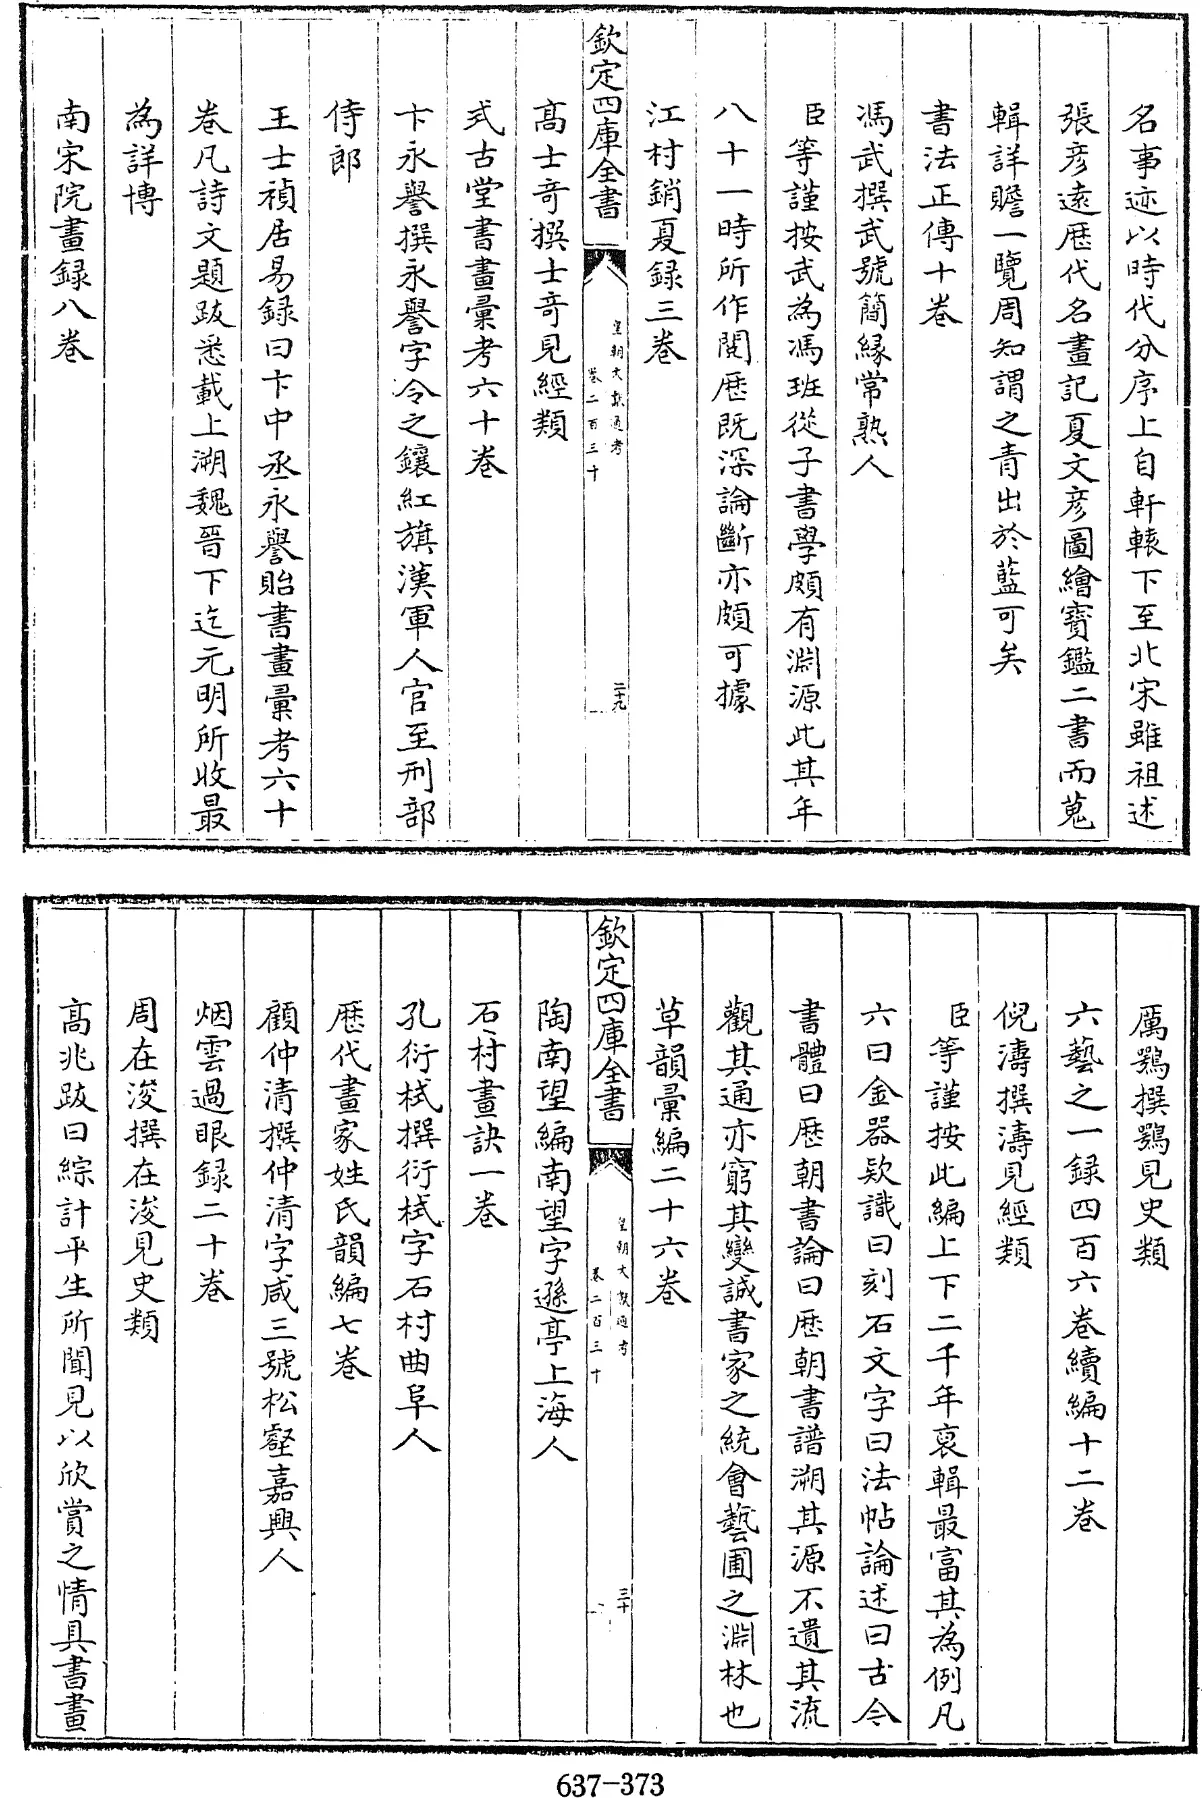 名事迹以時代分序上自軒轅下至北宋雖祖述
張彥遠歴代名畫記夏文彥圖繪寳鑑二書而蒐
輯詳贍一覽周知謂之青出於藍可矣
書法正傳十卷
馮武撰武號簡緣常熟人
臣等謹按武為馮班從子書學頗有淵源此其年
八十一時所作閱歴既深論斷亦頗可據
江村銷夏録三卷
欽定四庫全書
皇朝文獻通考
卷二百三十
二十九
高士奇撰士奇見經類
式古堂書畫彚考六十卷
卞永譽撰永譽字令之鑲紅旗漢軍人官至刑部
侍郎
王士禎居易録曰卞中丞永譽貽書畫彚考六十
卷凡詩文題跋悉載上溯魏晉下迄元明所收最
為詳博
南宋院畫録八卷
厲鶚撰鶚見史類
六藝之一録四百六卷續編十二卷
倪濤撰濤見經類
臣等謹按此編上下二千年裒輯最富其為例凡
六曰金器欵識曰刻石文字曰法帖論述曰古今
書體曰歴朝書論曰歴朝書譜溯其源不遺其流
觀其通亦窮其變誠書家之統會藝圃之淵林也
草韻彚編二十六卷
欽定四庫全書
皇朝文獻通考
卷二百三十
三十
陶南望編南望字遜亭上海人
石村畫訣一卷
孔衍栻撰衍栻字石村曲阜人
歴代畫家姓氏韻編七卷
顧仲清撰仲清字咸三號松壑嘉興人
烟雲過眼録二十卷
周在浚撰在浚見史類
高兆跋曰綜計平生所聞見以欣賞之情具書畫
637-373